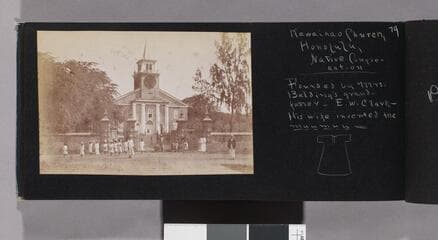 Kawaiahao Church, 79
Honolulu,
Native Congre-
gation.
Founded by Mrs.
Baldwin's grand-
father - E.W. Clark -
His wife invented the
muumuu -